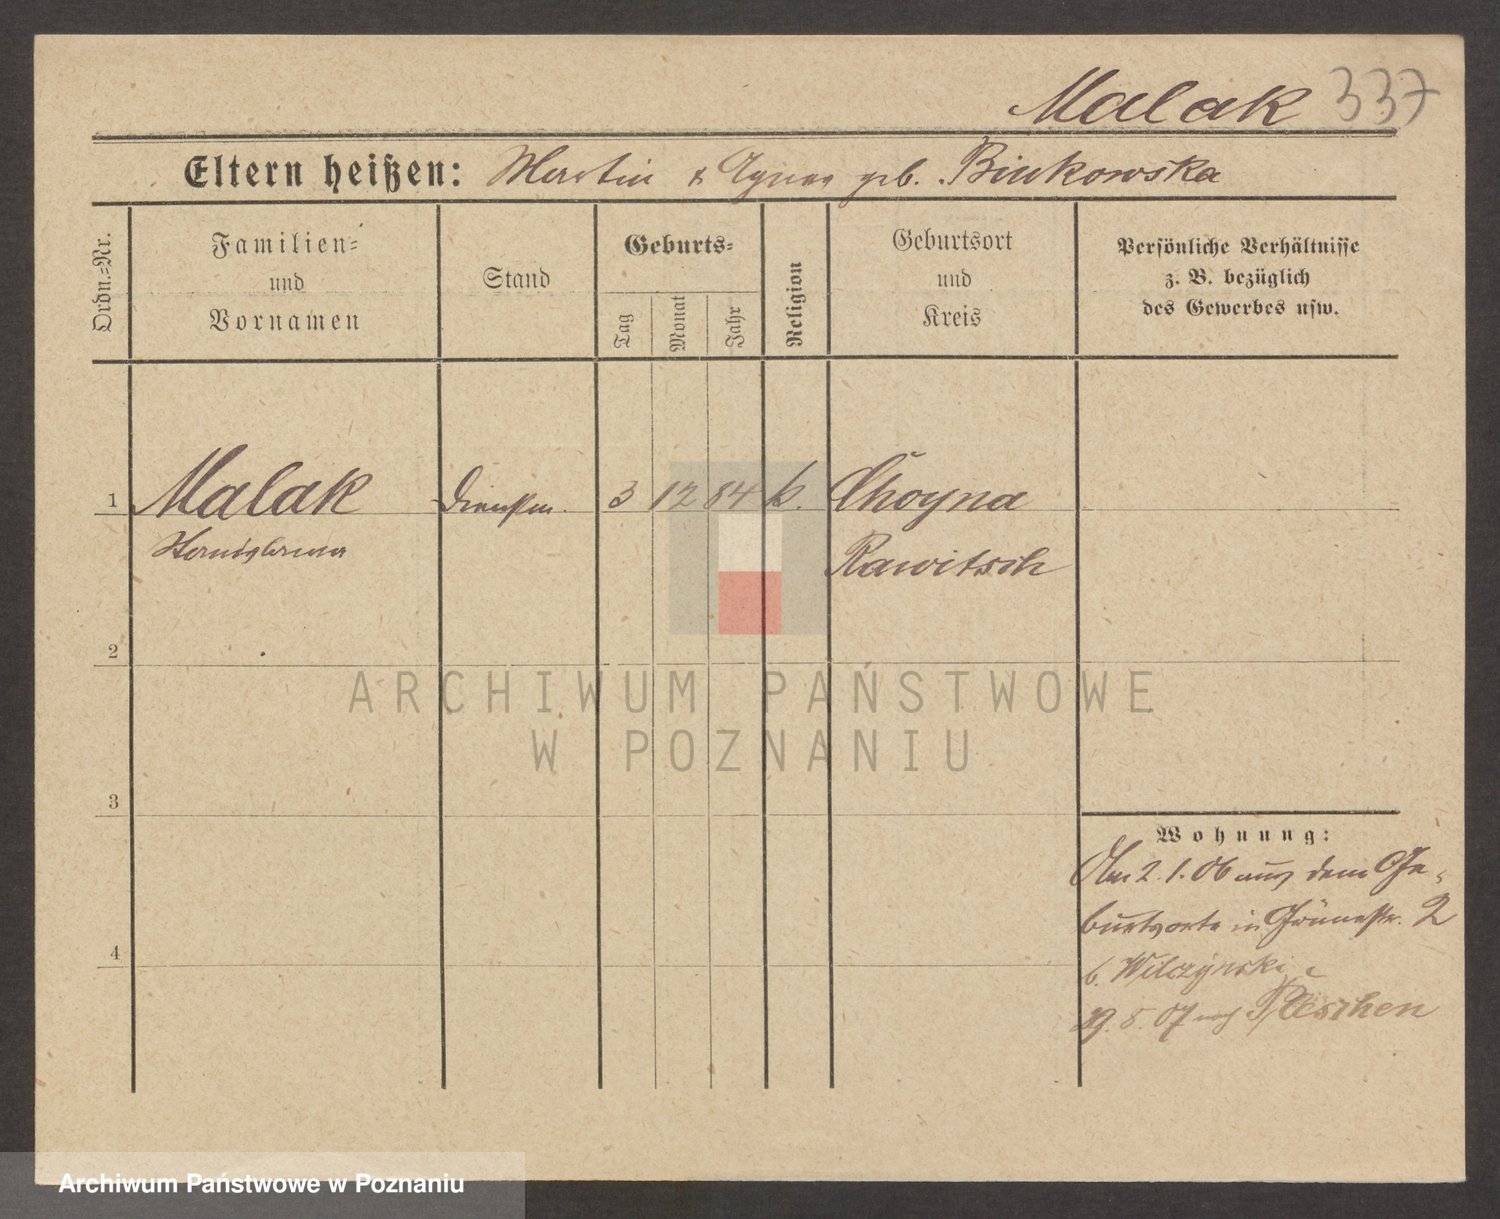 Malak 337
Eltern heißen: Martin & Agnes geb. Binkowska
Ordn.-Nr.
Familien-
und
Vornamen
Stand
Geburts-
Tag
Monat
Jahr
Religion
Geburtsort
und
Kreis
Persönliche Verhältnisse
z. B. bezüglich
des Gewerbes usw.
1 Malak Dienstm. 3 12 84 k. Choyna
Stanislawa Rawitsch
2
3
Wohnung:
Am 2.1.06 aus dem Ge-
burtsorte in Grünestr. 2
4
b. Wilczynski
29.5.07 nach Pleschen
ARCHIWUM PAŃSTWOWE
W POZNANIU
Archiwum Państwowe w Poznaniu